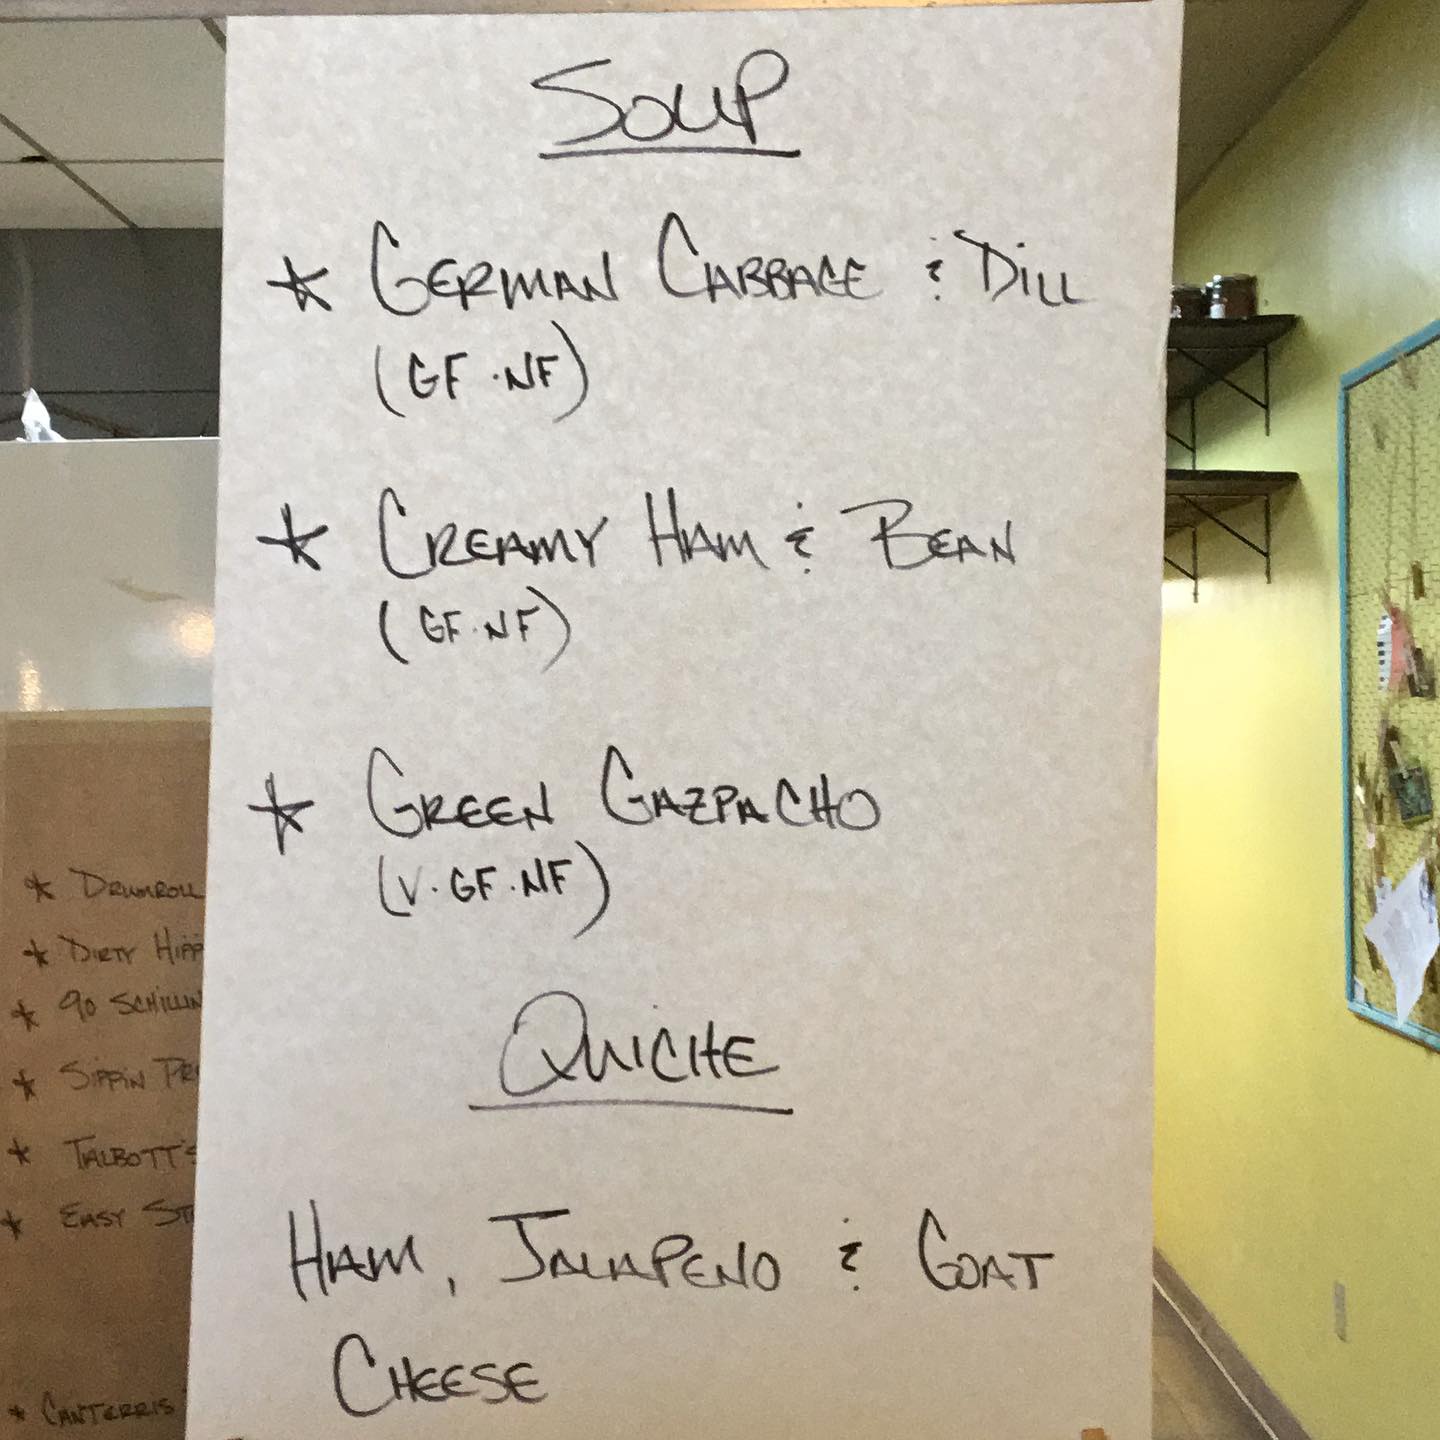 SOUP
* GERMAN CABBAGE & DILL
(GF · NF)
* CREAMY HAM & BEAN
(GF · NF)
* GREEN GAZPACHO
(V · GF · NF)
QUICHE
HAM, JALAPENO & GOAT
CHEESE
* DRUMROLL
* DIRTY HIPP
* 90 SCHILLIN
* SIPPIN PR
* TALBOTT'S
* EASY ST
* CANTERRIS